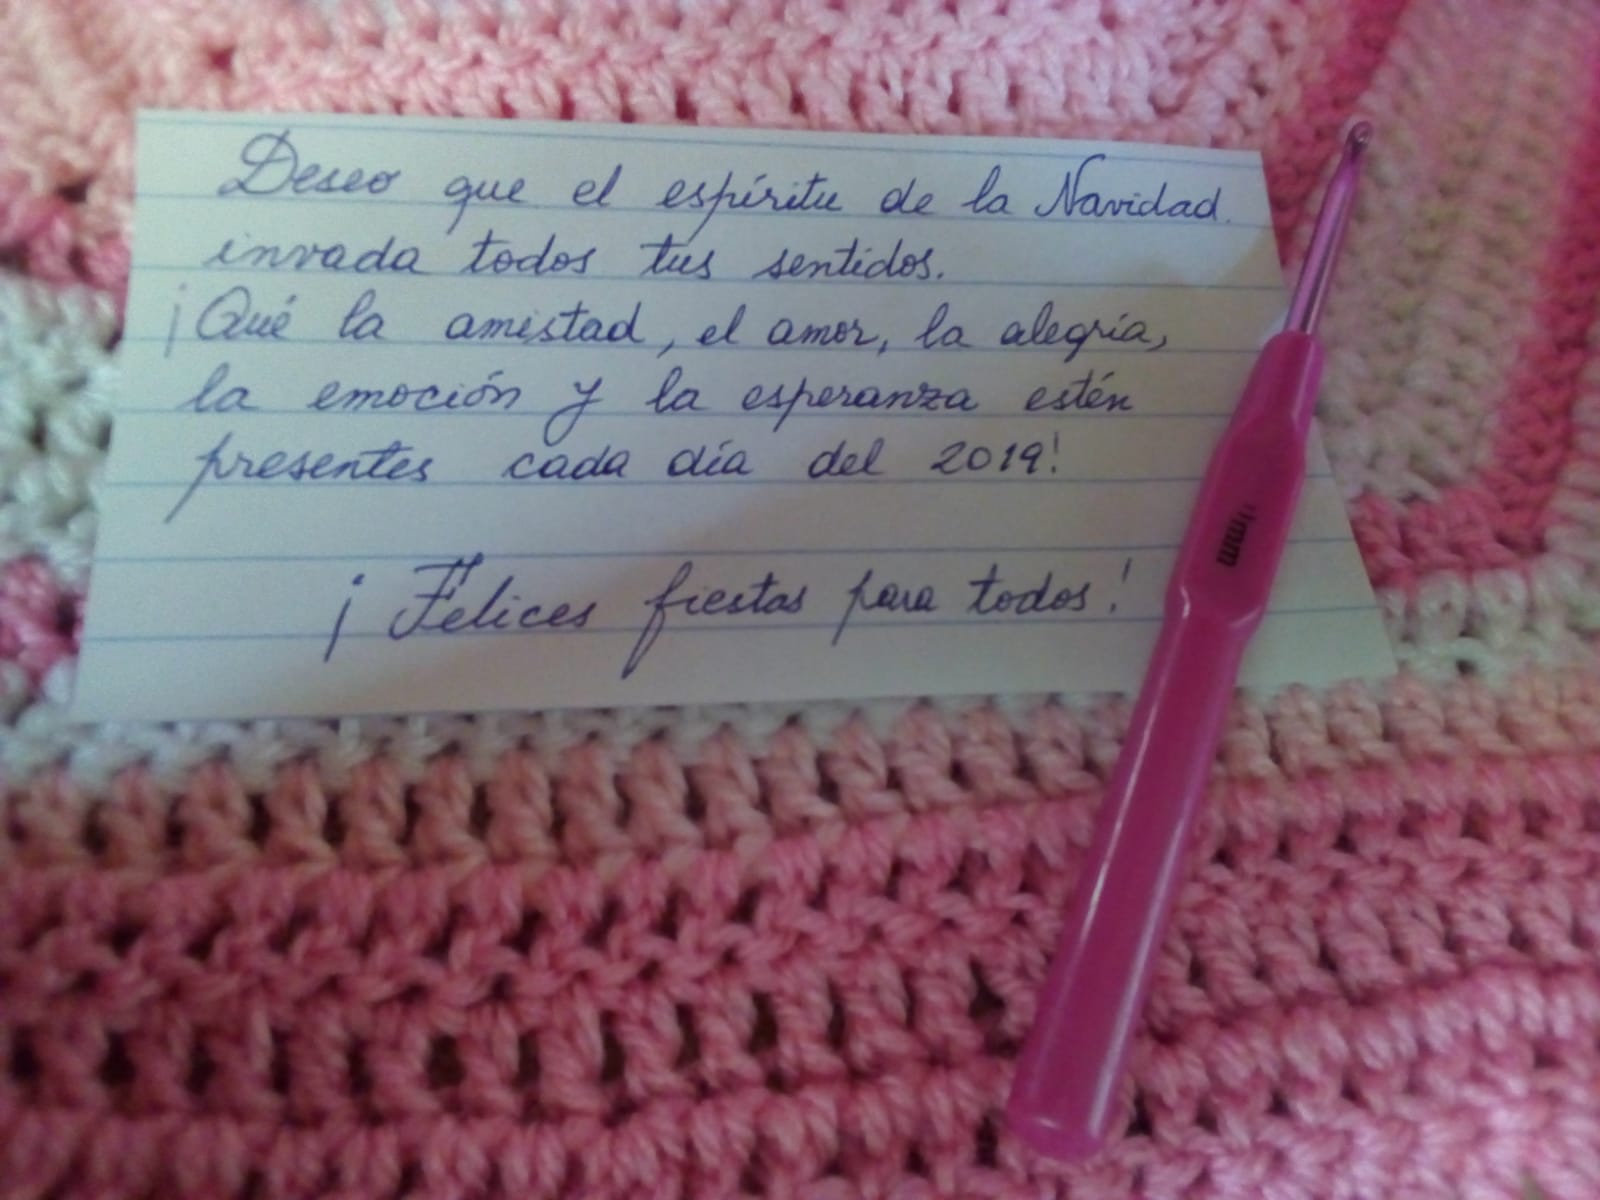 Deseo que el espíritu de la Navidad
invada todos tus sentidos.
¡Qué la amistad, el amor, la alegría,
la emoción y la esperanza estén
presentes cada día del 2019!
¡Felices fiestas para todos!
mm